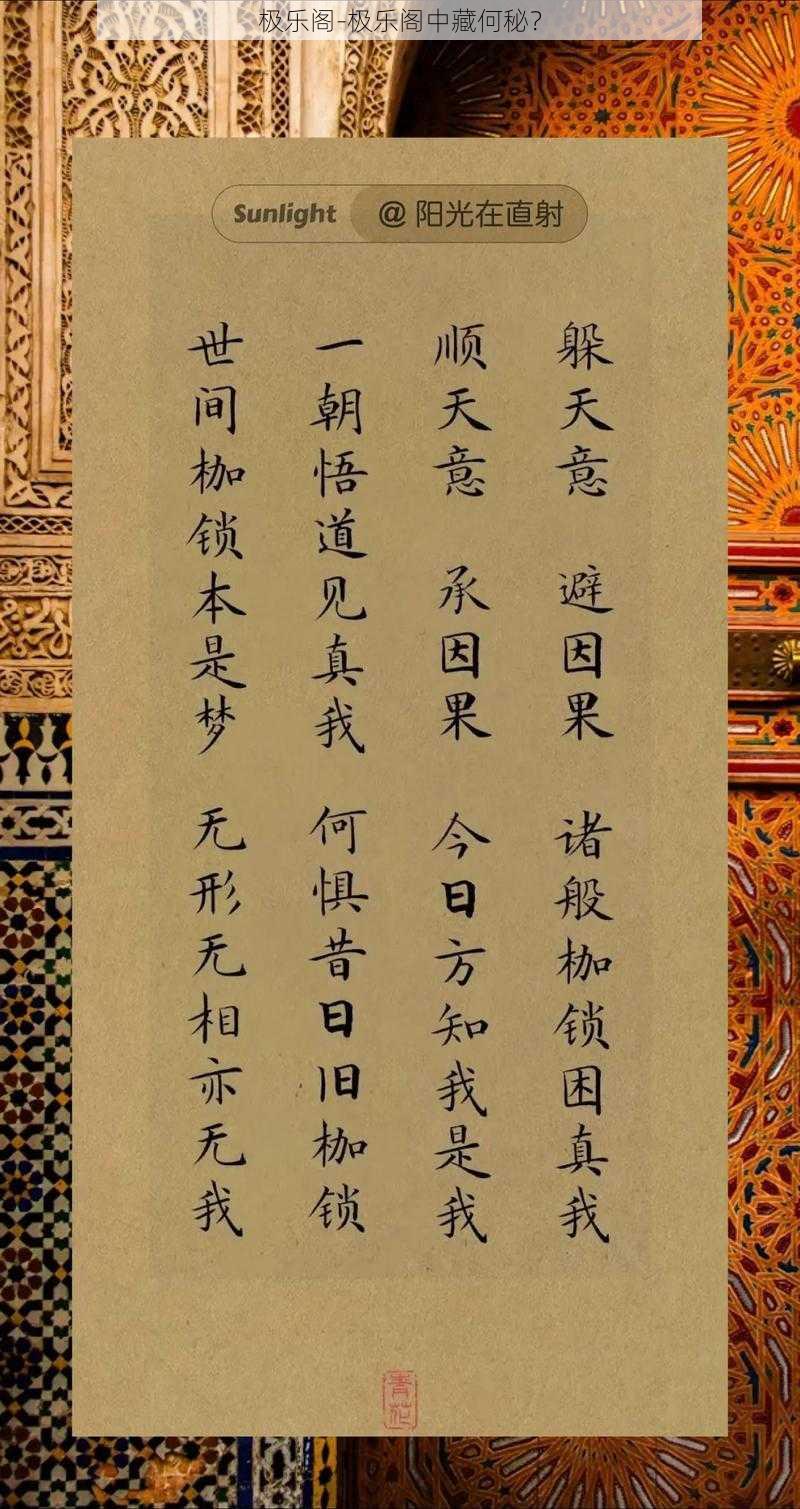 极乐阁-极乐阁中藏何秘？
Sunlight @ 阳光在直射
躲天意 避因果 诸般枷锁困真我
顺天意 承因果 今日方知我是我
一朝悟道见真我 何惧昔日旧枷锁
世间枷锁本是梦 无形无相亦无我
青花